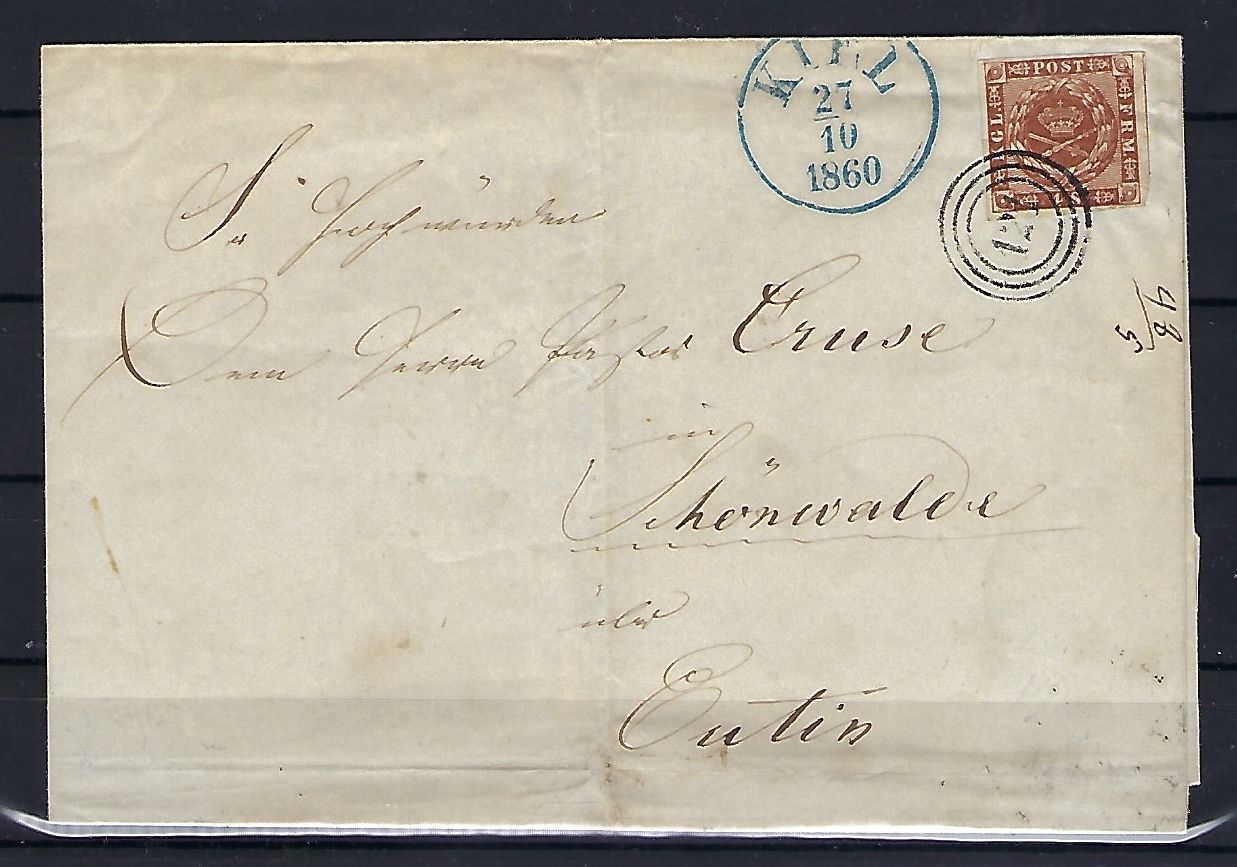 KIEL
27
10
1860
KGL. POST FRM.
4 S.
124
48/5
Sr. Hochwürden
Dem Herrn Pastor Cruse
in
Schönwalde
über
Eutin